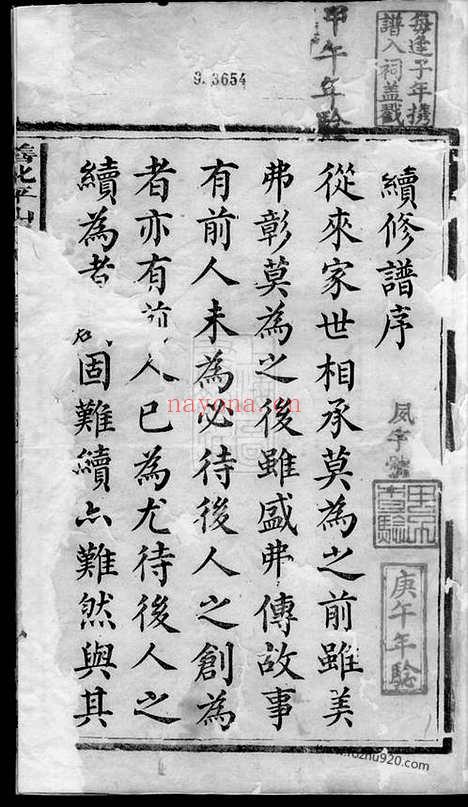 每逢子年攜
譜入祠蓋戳
甲午年驗
9. 3654
續修譜序
從來家世相承莫為之前雖美
弗彰莫為之後雖盛弗傳故事
有前人未為必待後人之創為
者亦有前人已為尤待後人之
續為者 固難續亦難然與其
鳳字號
庚午年驗
nayona.cn
www.fozhu920.com